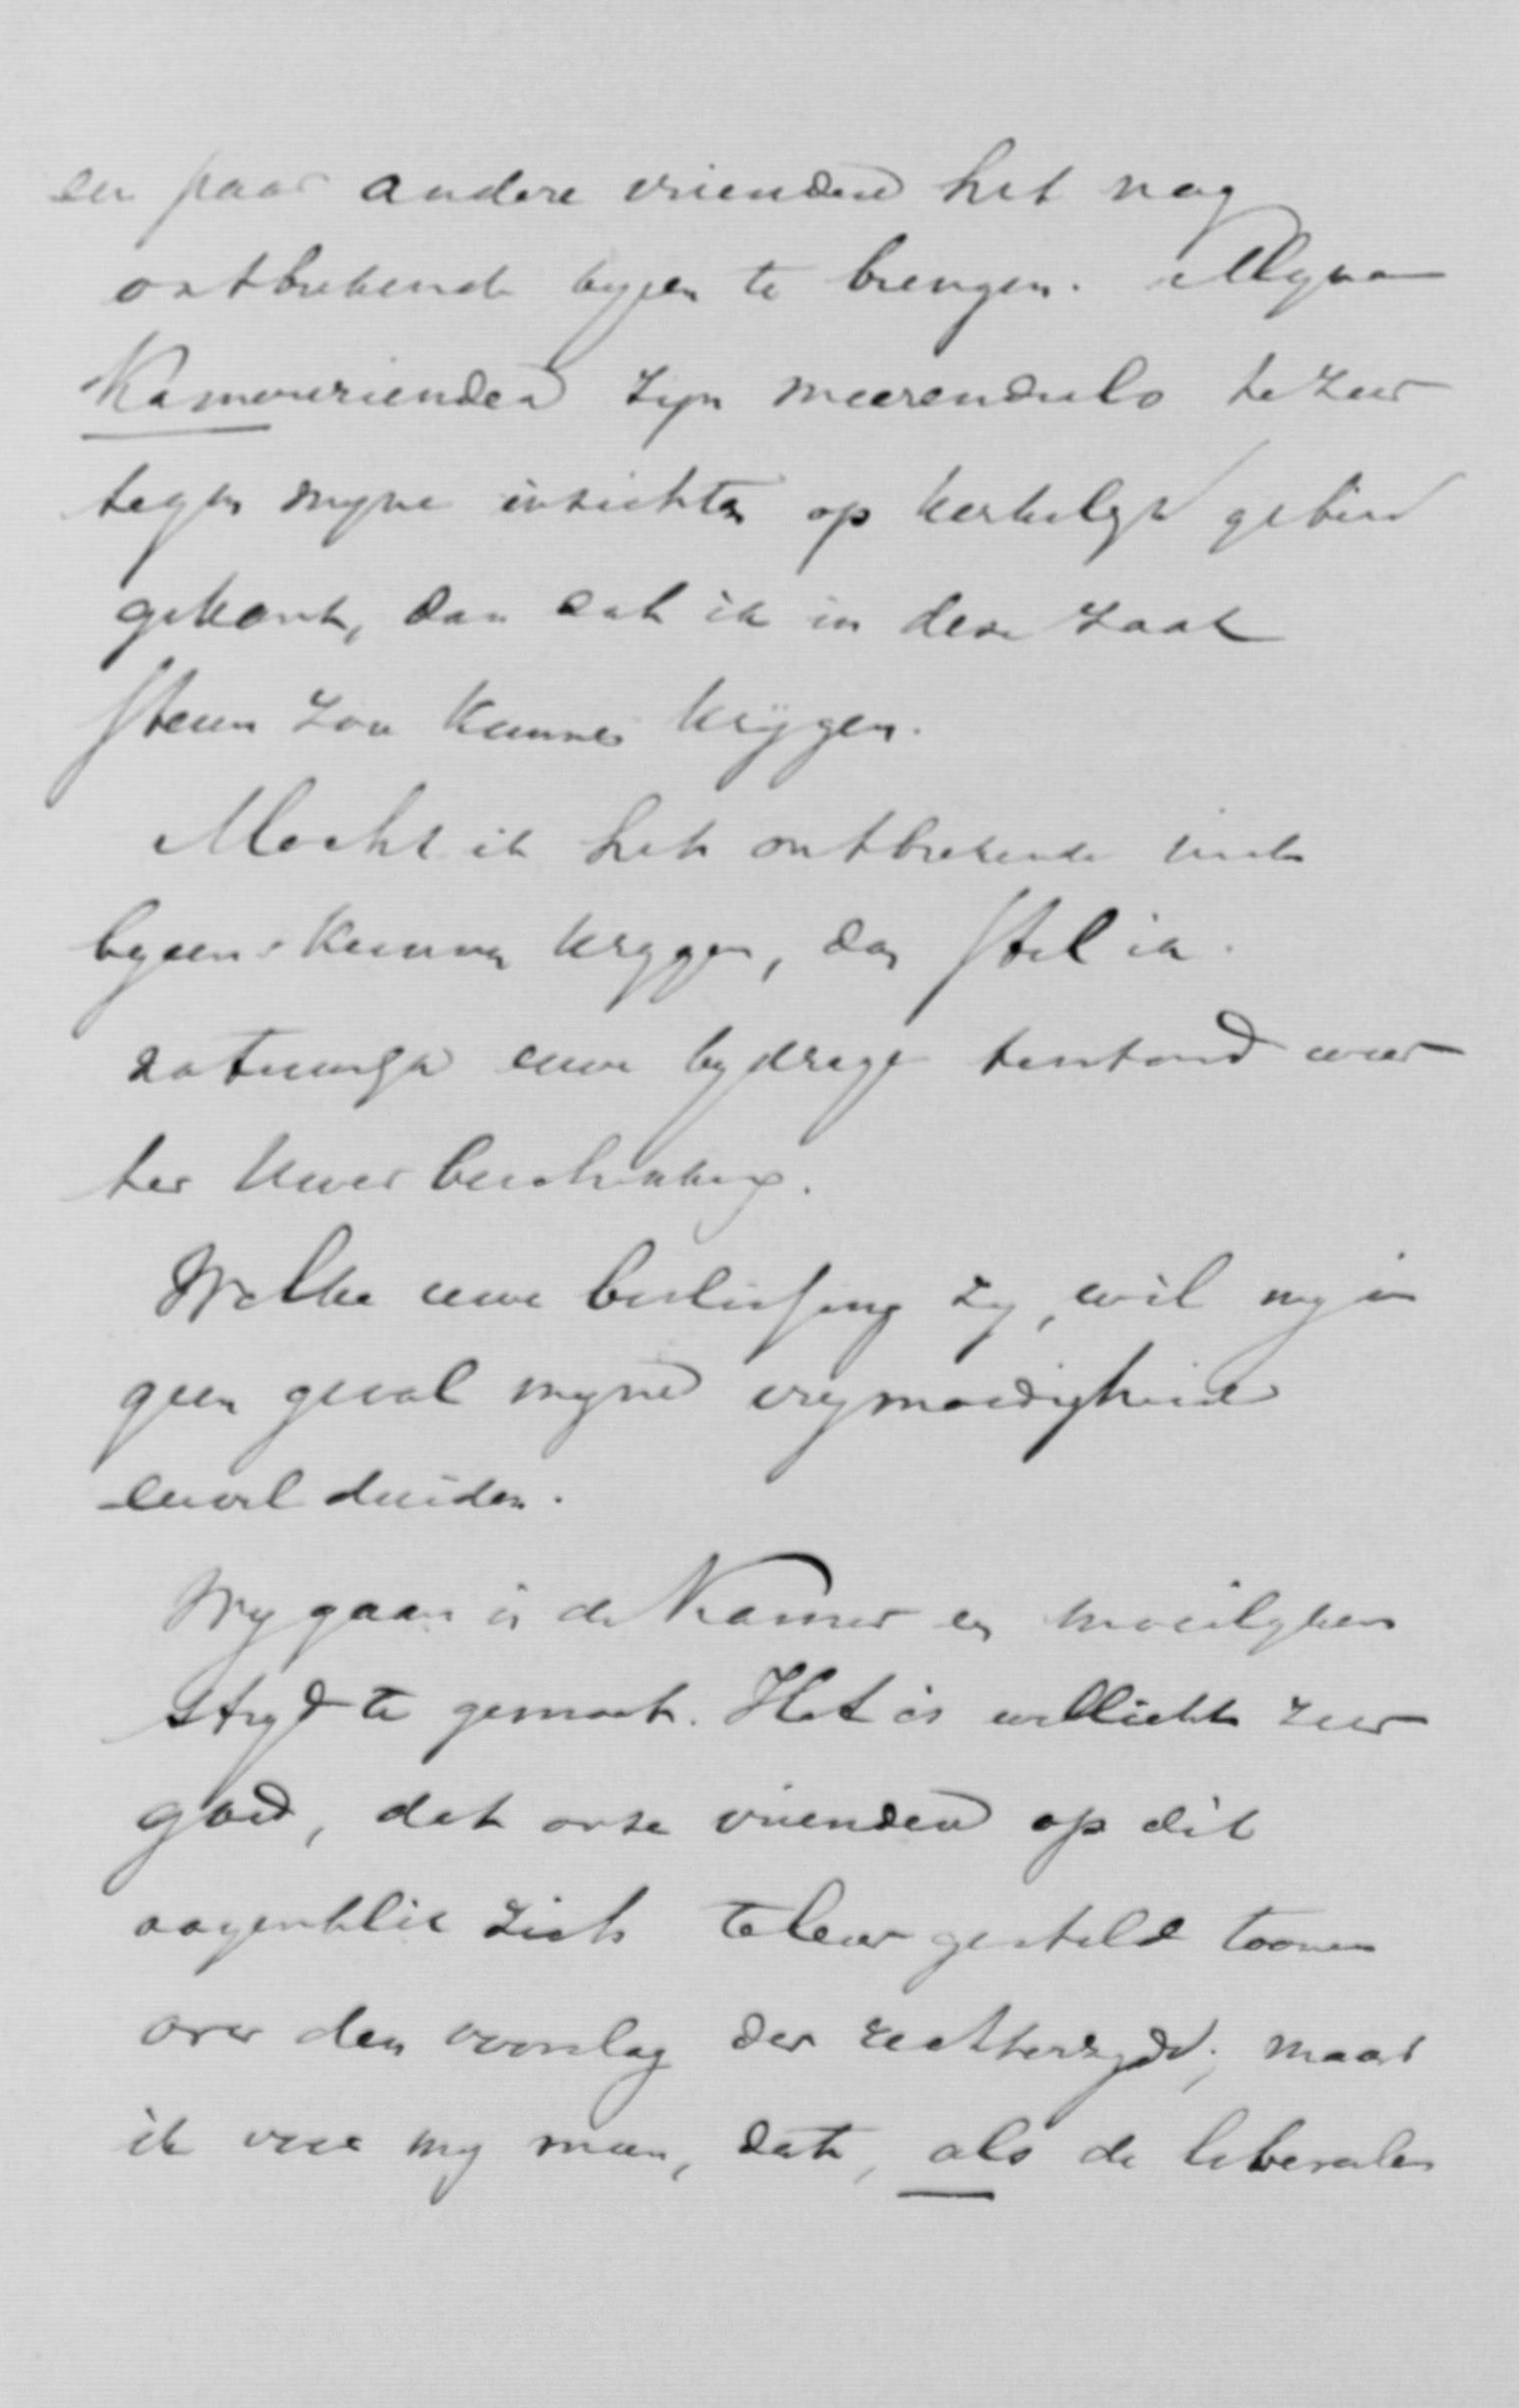 een paar andere vrienden het nog
ontbrekende byeen te brengen. Myne
Kamervrienden zyn meerendeels te zeer
tegen myne inzichten op kerkelyk gebied
gekant, dan dat ik in deze zaak
steun zou kunnen krygen.
Mocht ik het ontbrekende niet
byeen kunnen krygen, dan stel ik
natuurlyk uwe bydrage terstond weer
ter Uwer beschikking.
Welke uwe beslissing zy, wil my in
geen geval myne vrymoedigheid
euvel duiden.
Wy gaan in de Kamer een moeilyken
stryd te gemoet. Het is wellicht zeer
goed, dat onze vrienden op dit
oogenblik zich teleurgesteld toonen
over den voorslag der rechterzyde; maar
ik voor my meen, dat, als de liberalen